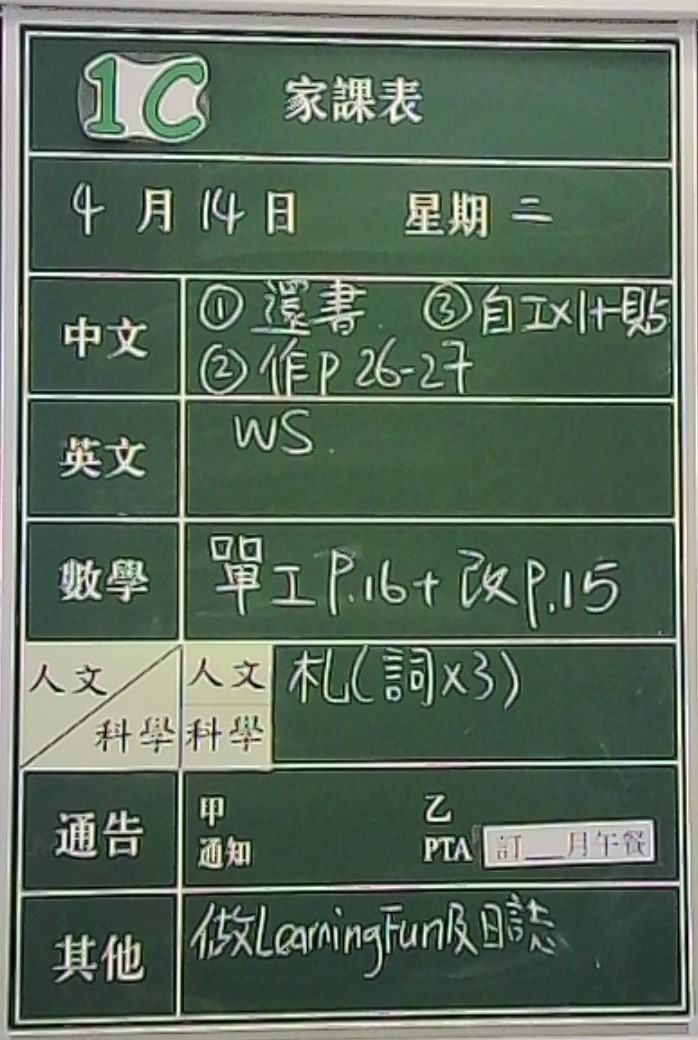 1C 家課表
4月14日 星期二
中文 ①還書 ③自工x1+貼
②作p 26-27
英文 WS.
數學 單工 P.16+改P.15
人文 人文 札(詞x3)
科學 科學
通告 甲 乙
通知 PTA 訂__月午餐
其他 做Learning Fun及日誌